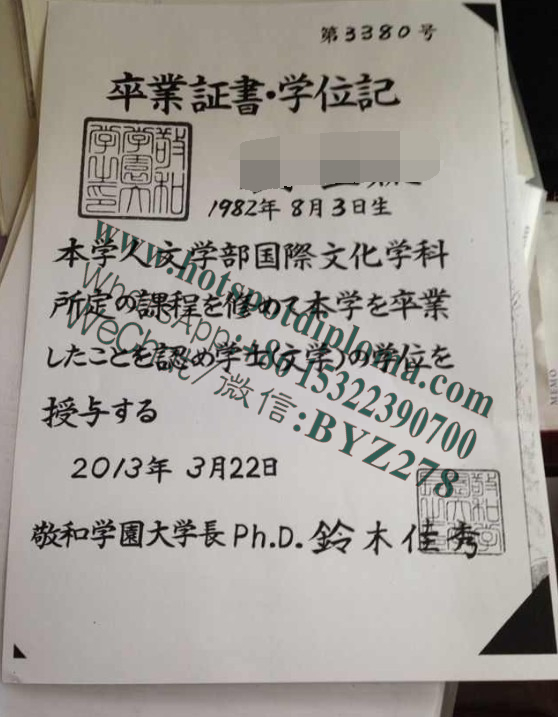 第3380号
卒業証書・学位記
敬和
学園大
学之印
1982年8月3日生
本学人文学部国際文化学科
所定の課程を修めて本学を卒業
したことを認め学士(文学)の学位を
授与する
2013年 3月22日
敬和学園大学長 Ph.D. 鈴木佳秀
www.hotspotdiploma.com
WhatsApp:+86 15322390700
WeChat/微信:BYZ278
MEMO